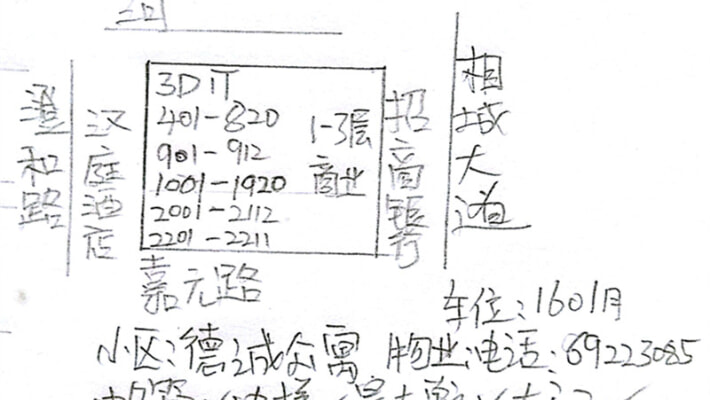 相城大道
澄和路
汉庭酒店
3D IT
401-820
901-912
1001-1920
2001-2112
2201-2211
1-3层
商业
招商银行
嘉元路
车位:160/月
小区:德诚公寓 物业电话:69223085